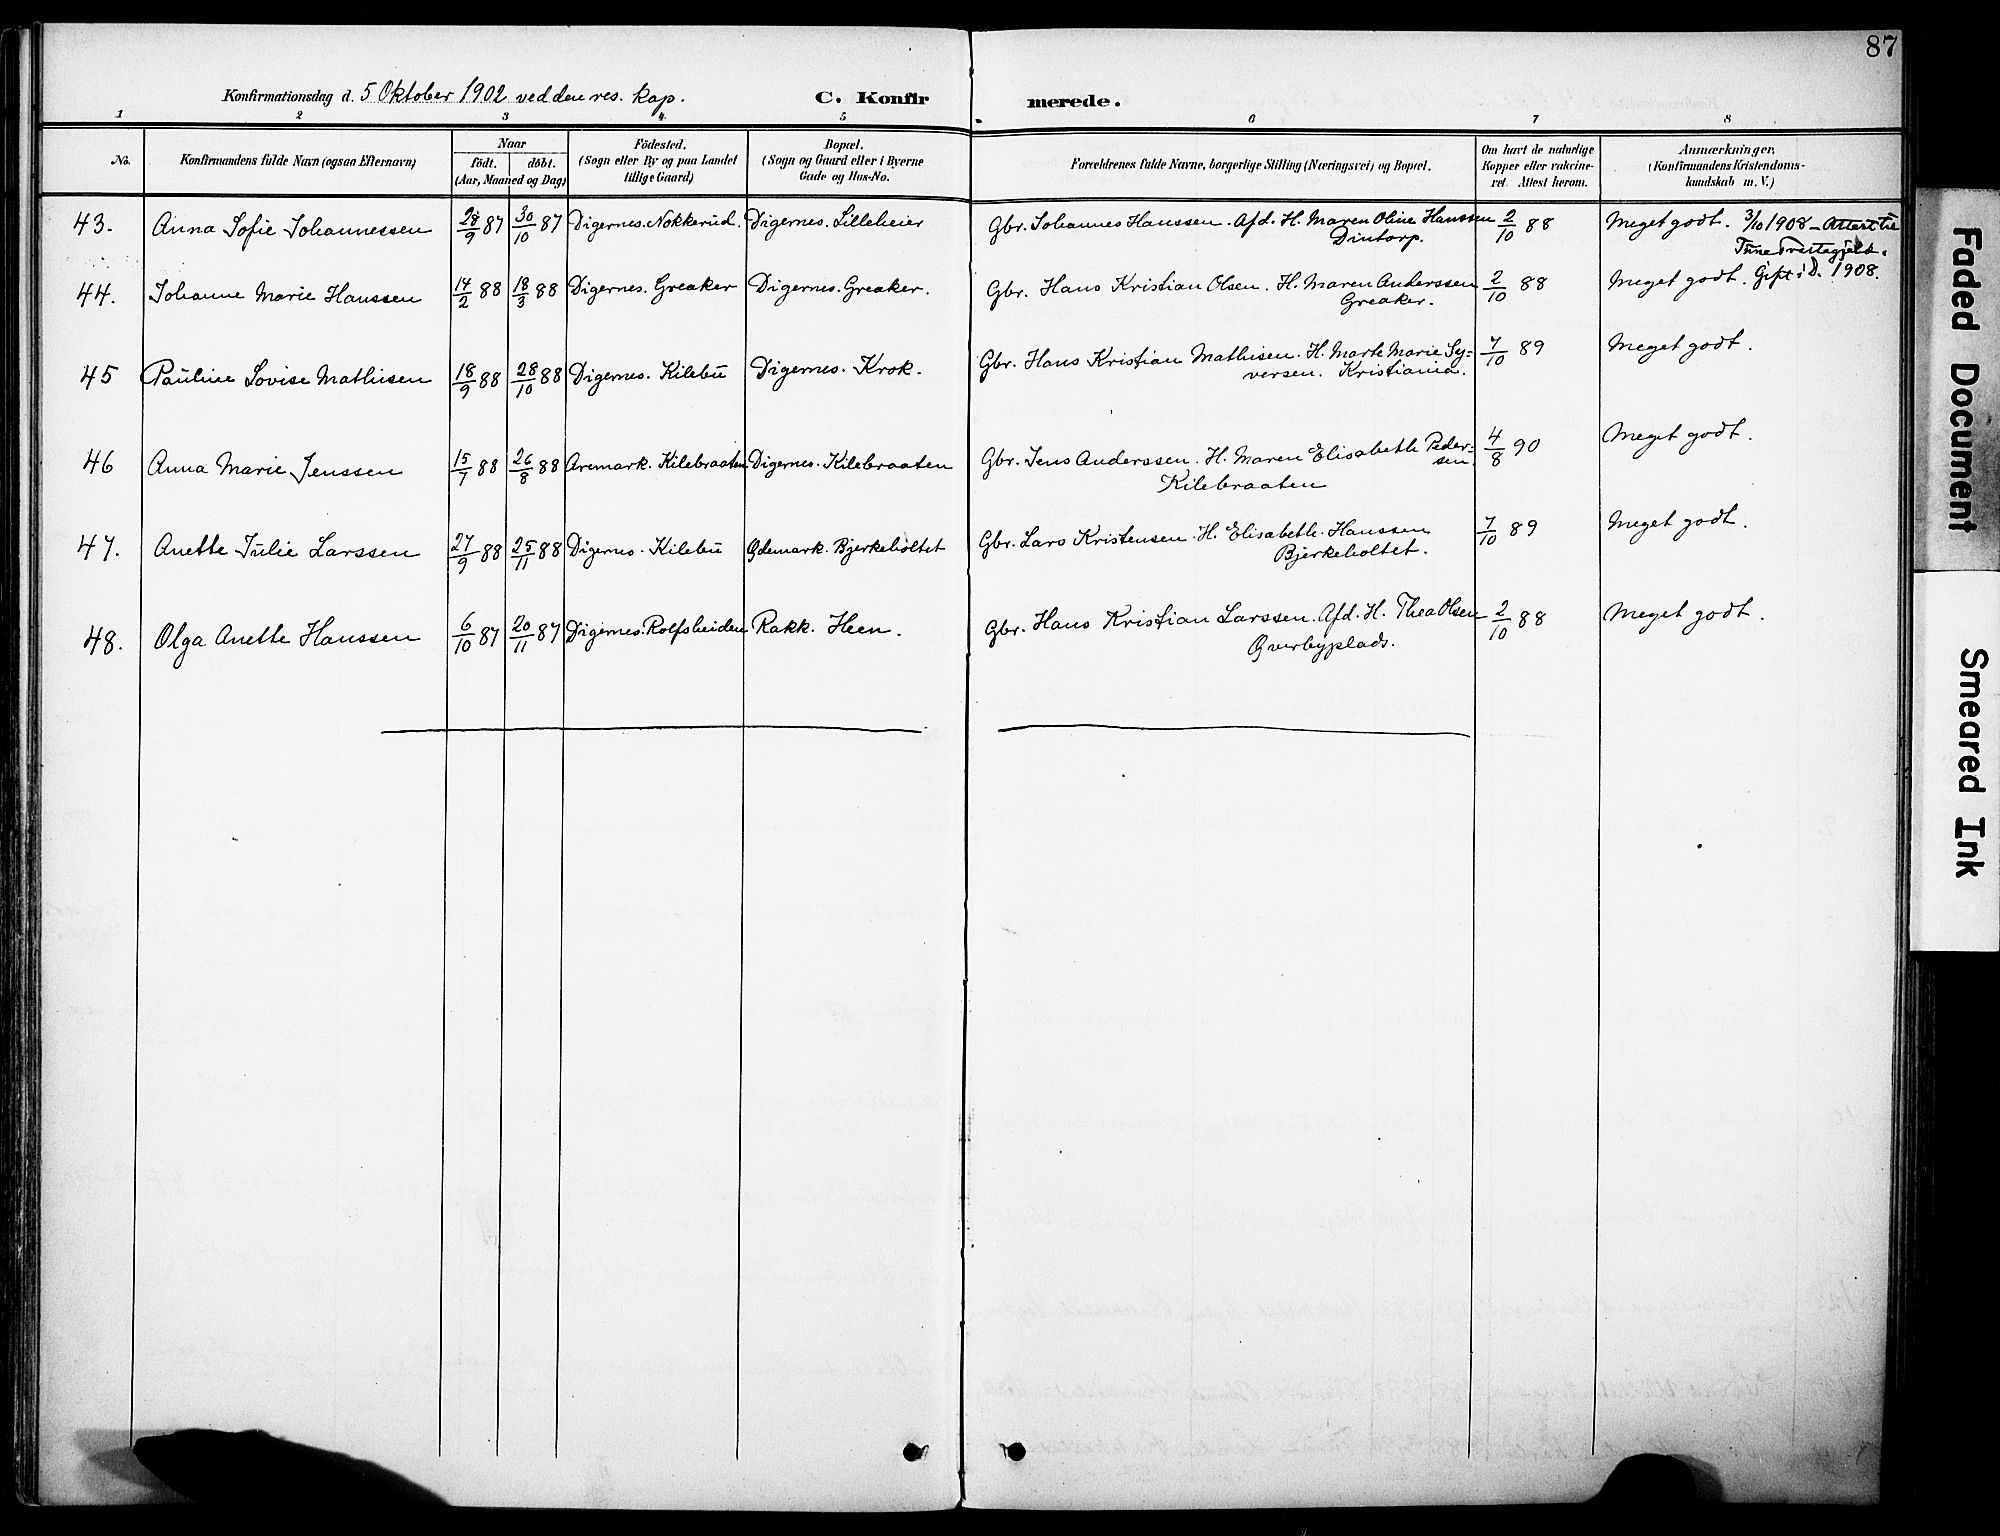 87
Konfirmationsdag d. 5 Oktober 1902 ved den res. kap. C. Konfirmerede.
1 2 3 4. 5 6 7 8
No. Konfirmandens fulde Navn (ogsaa Efternavn)
Naar
födt. döbt.
(Aar, Maaned og Dag)
Födested.
(Sogn eller By og paa Landet
tillige Gaard)
Bopæl.
(Sogn og Gaard eller i Byerne
Gade og Hus-No.
Forældrenes fulde Navne, borgerlige Stilling (Næringsvei) og Bopæl.
Om havt de naturlige
Kopper eller vakcine-
ret. Attest herom.
Anmærkninger.
(Konfirmandens Kristendoms-
kundskab m. V.)
43. Anna Sofie Johannessen 28/9 87 30/10 87 Digernes. Nokkerud. Digernes. Lilleheier Gbr. Johannes Hanssen. Afd. H. Maren Oline Hanssen 2/10 88 Meget godt. 3/10 1908 - Attest til
Dintorp. Tune Prestegjeld.
44. Johanne Marie Hanssen 14/2 88 18/3 88 Digernes. Greaker Digernes. Greaker. Gbr. Hans Kristian Olsen. H. Maren Anderssen 2/10 88 Meget godt. Gift i D. 1908.
Greaker.
45 Pauline Lovise Mathisen 18/9 88 28/10 88 Digernes. Kilebu Digernes. Krok. Gbr. Hans Kristian Mathisen. H. Marte Marie Sy= 7/10 89 Meget godt.
versen. Kristiania.
46 Anna Marie Jenssen 15/7 88 26/8 88 Aremark. Kilebraaten Digernes. Kilebraaten Gbr. Jens Anderssen. H. Maren Elisabeth Peder- 4/8 90 Meget godt.
sen.
Kilebraaten
47. Anette Julie Larssen 27/9 88 25/11 88 Digernes. Kilebu Ødemark. Bjerkeholtet Gbr. Lars Kristensen. H. Elisabeth. Hanssen 7/10 89 Meget godt.
Bjerkeholtet.
48. Olga Anette Hanssen 6/10 87 20/11 87 Digernes. Rolfsheiden Rakk. Heen. Gbr. Hans Kristian Larssen. Afd. H. Thea Olsen 2/10 88 Meget godt.
Øverbyplads.
Faded Document
Smeared Ink